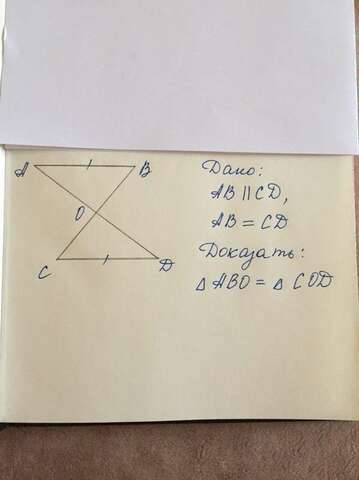 A
B
O
C
D
Дано:
AB || CD,
AB = CD
Доказать:
△ ABO = △ COD